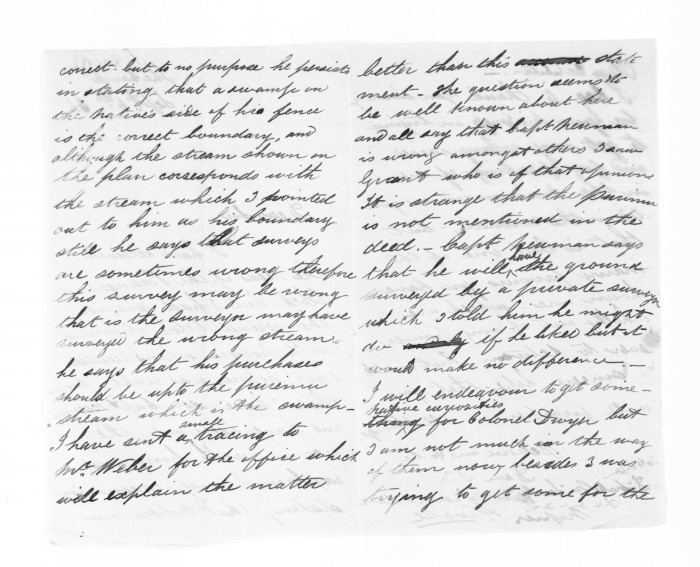 correct but to no purpose he persists
in stating that a swamp on
the native's side of his fence
is the correct boundary, and
although the stream shown on
the plan corresponds with
the stream which I pointed
out to him as his boundary
still he says that surveys
are sometimes wrong therefore
this survey may be wrong
that is the surveyor may have
surveyed the wrong stream-
he says that his purchases
should be upto the
stream which is the swamp-
I have sent a tracing to
Mr. Weber for the office which
will explain the matter
better than this state
ment - the question seems to
be well known about here
and all say that Capt Newman
is wrong amongst others I saw
Grant who is of that opinion
It is strange that the
is not mentioned in the
deed. - Capt Newman says
that he will have the ground
surveyed by a private surveyor
which I told him he might
do if he liked but it
would make no difference. -
I will endeavour to get some-
native curiosities
thing for Colonel Dwyer but
I am not much in the way
of them now, besides I was
trying to get some for the